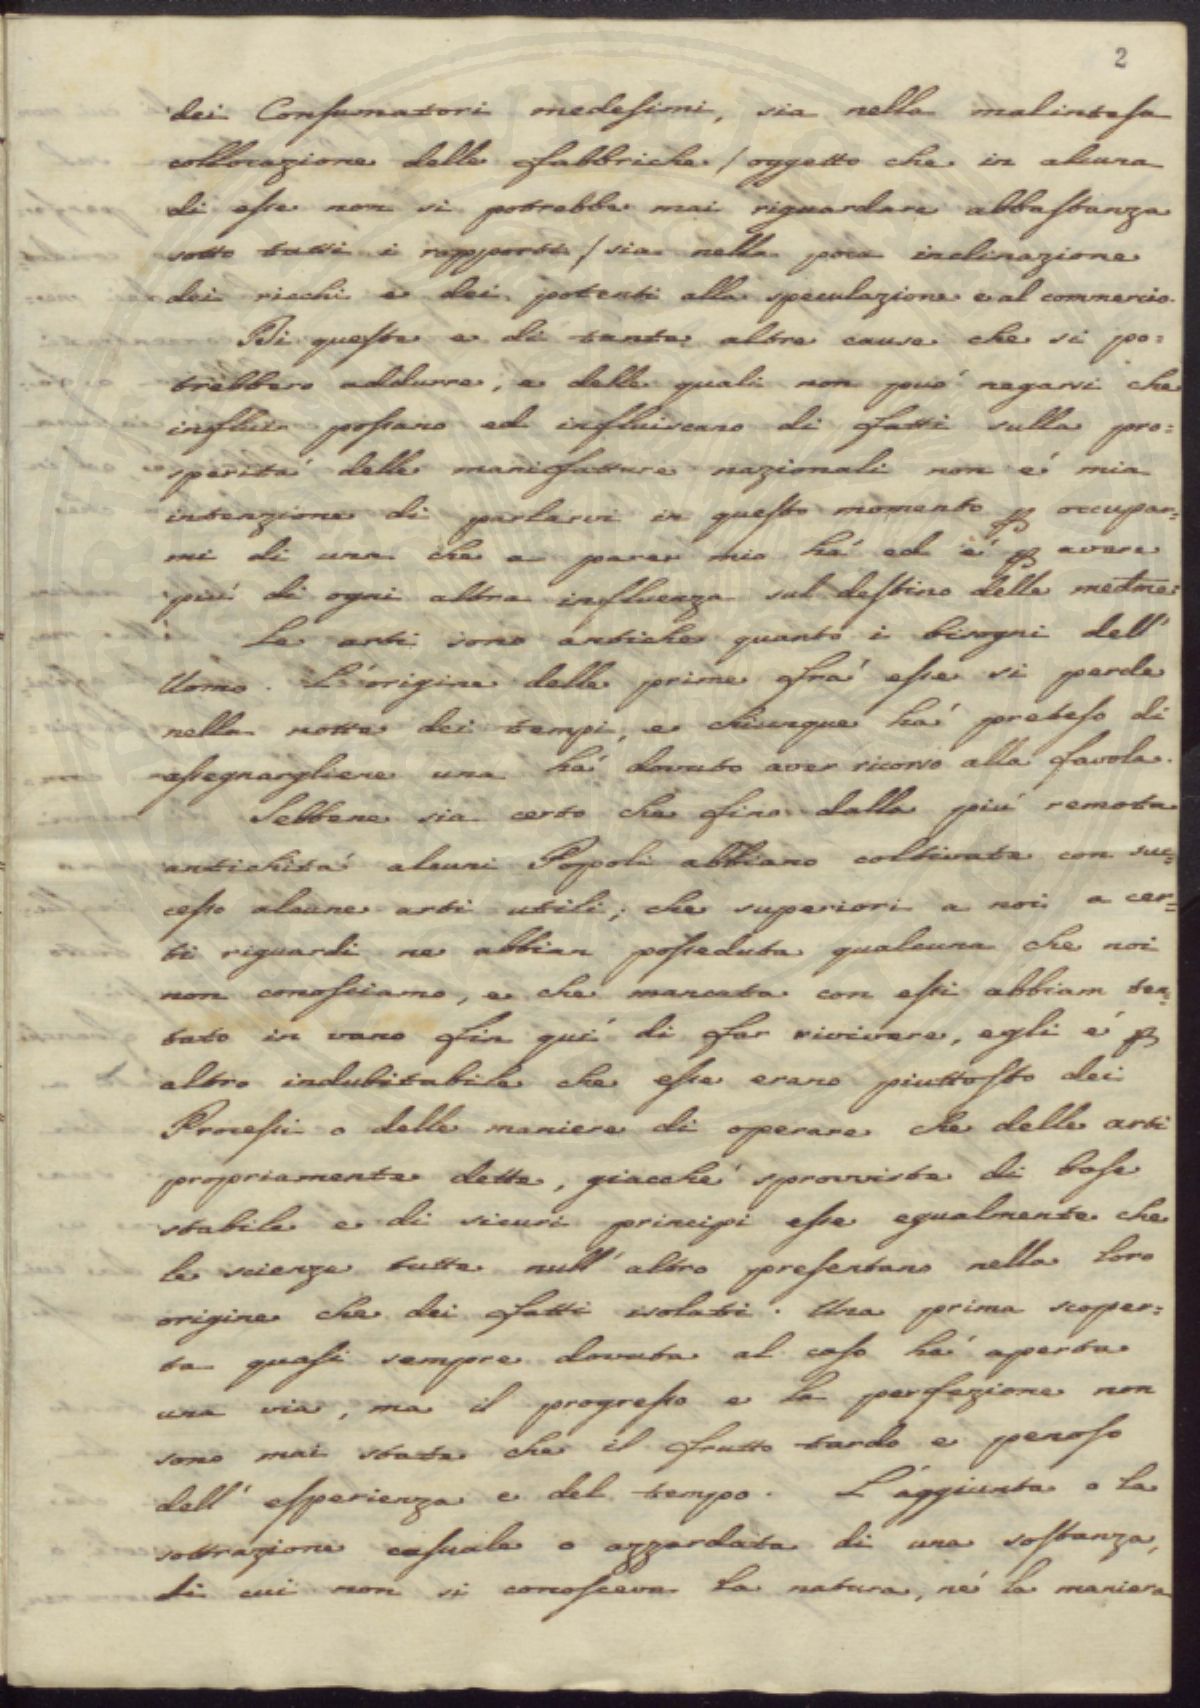 2
dei Consumatori medesimi, sia nella malintesa
collocazione delle fabbriche / oggetto che in alcuna
di esse non si potrebbe mai riguardare abbastanza
sotto tutti i rapporti / sia nella poca inclinazione
dei ricchi e dei potenti alla speculazione e al commercio.
Di queste e di tante altre cause che si po=
trebbero addurre, e delle quali non può negarsi che
influir possano ed influiscano di fatti sulla pro=
sperità delle manifatture nazionali non é mia
intenzione di parlarvi in questo momento p occupar=
mi di una che a parer mio há ed é p avere
piú di ogni altra influenza sul destino delle medme:
Le arti sono antiche quanto i bisogni dell'
Uomo. L'origine delle prime frá esse si perde
nella notte dei tempi, e chiunque há preteso di
assegnargliene una há dovuto aver ricorso alla favola.
Sebbene sia certo che fino dalla piú remota
antichitá alcuni Popoli abbiano coltivate con suc=
cesso alcune arti utili; che superiori a noi a cer=
ti riguardi ne abbian posseduta qualcuna che noi
non conosciamo, e che mancata con essi abbiam ten=
tato in vano fin quí di far rivivere, egli é p
altro indubitabile che esse erano piuttosto dei
Processi o delle maniere di operare che delle arti
propriamente dette, giacché sprovviste di base
stabile e di sicuri principi esse egualmente che
le scienze tutte null'altro presentano nella loro
origine che dei fatti isolati. Una prima scoper=
ta quasi sempre dovuta al caso há aperta
una via, ma il progresso e la perfezione non
sono mai state che il frutto tardo e penoso
dell'esperienza e del tempo. L'aggiunta o la
sottrazione casuale o azzardata di una sostanza,
di cui non si conosceva la natura, né la maniera